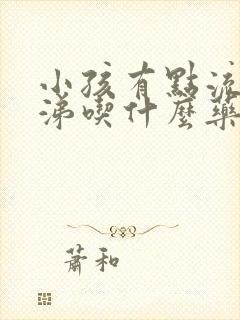 小孩有點流
涕喫什麼藥
蕭和